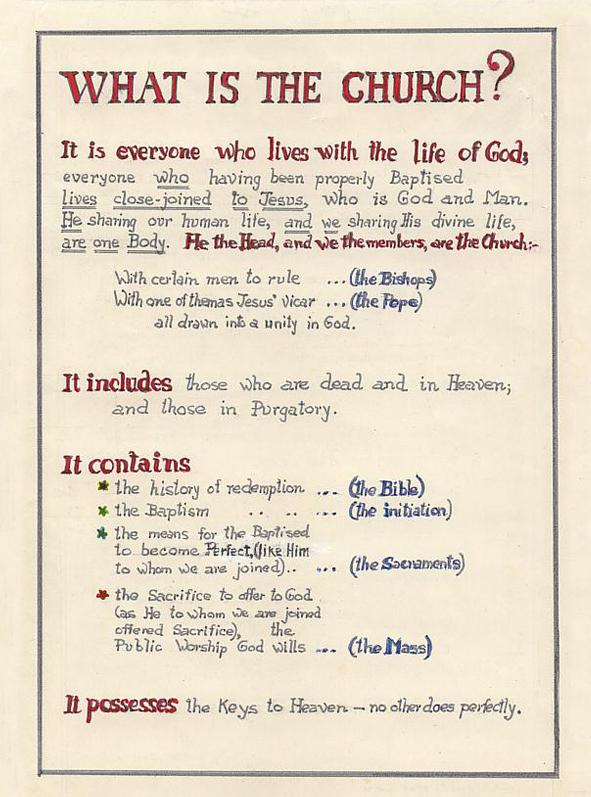 WHAT IS THE CHURCH?
It is everyone who lives with the life of God;
everyone who having been properly Baptised
lives close-joined to Jesus, who is God and Man.
He sharing our human life, and we sharing His divine life,
are one Body. He the Head, and we the members, are the Church:-
With certain men to rule ... (the Bishops)
With one of them as Jesus' vicar ... (the Pope)
all drawn into a unity in God.
It includes those who are dead and in Heaven;
and those in Purgatory.
It contains
* the history of redemption ... (the Bible)
* the Baptism .. .. ... (the initiation)
* the means for the Baptised
to become Perfect, (like Him
to whom we are joined).. ... (the Sacraments)
* the Sacrifice to offer to God
(as He to whom we are joined
offered Sacrifice), the
Public Worship God wills ... (the Mass)
It possesses the Keys to Heaven – no other does perfectly.